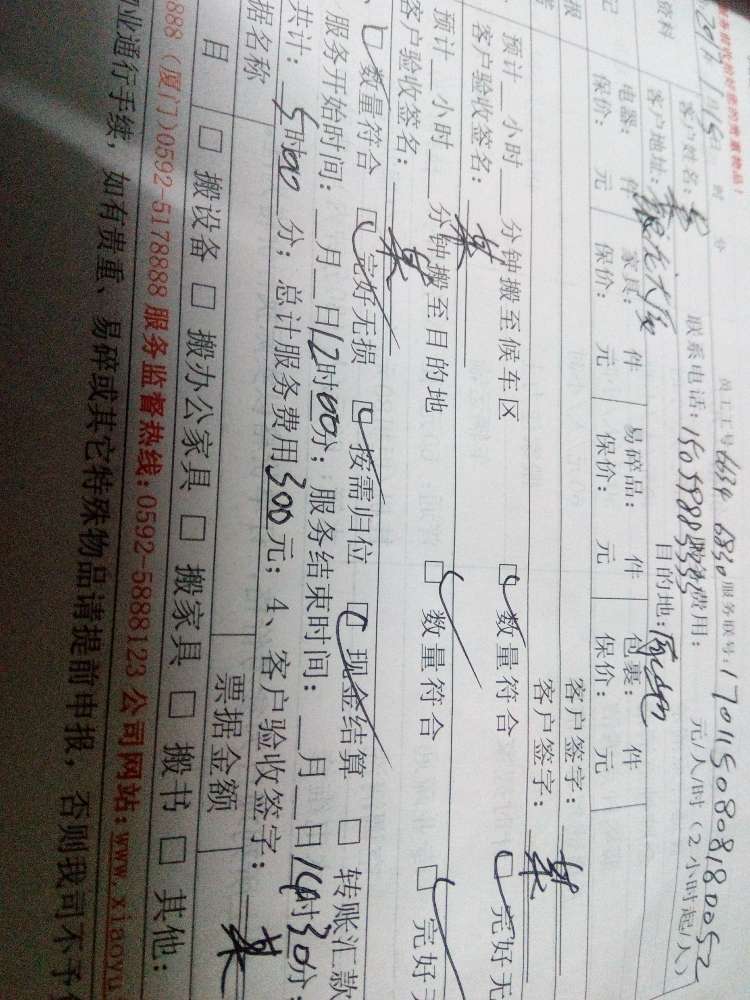 资料
客户姓名:
联系电话:
服务费用: 元/人/时(2小时起/人)
员工工号
服务联号:1701150808180052
客户地址:
目的地:
电器: 件 家具: 件 易碎品: 件 包裹: 件
保价: 元 保价: 元 保价: 元 保价: 元
客户签字:
预计__小时__分钟搬至候车区 数量符合 完好无
客户验收签名: 某 客户签字: 某
预计__小时__分钟搬至目的地 数量符合 完好无
客户验收签名: 某
数量符合 完好无损 按需归位 现金结算 转账汇款
服务开始时间:__月__日12时00分;服务结束时间:__月__日14时30分;
共计:5时00分;总计服务费用300元;4、客户验收签字: 某
据名称 票据金额
目 搬设备 搬办公家具 搬家具 搬书 其他:
888 (厦门)0592-5178888 服务监督热线:0592-5888123 公司网站:www.xiaoyu
业通行手续,如有贵重、易碎或其它特殊物品请提前申报,否则我司不予